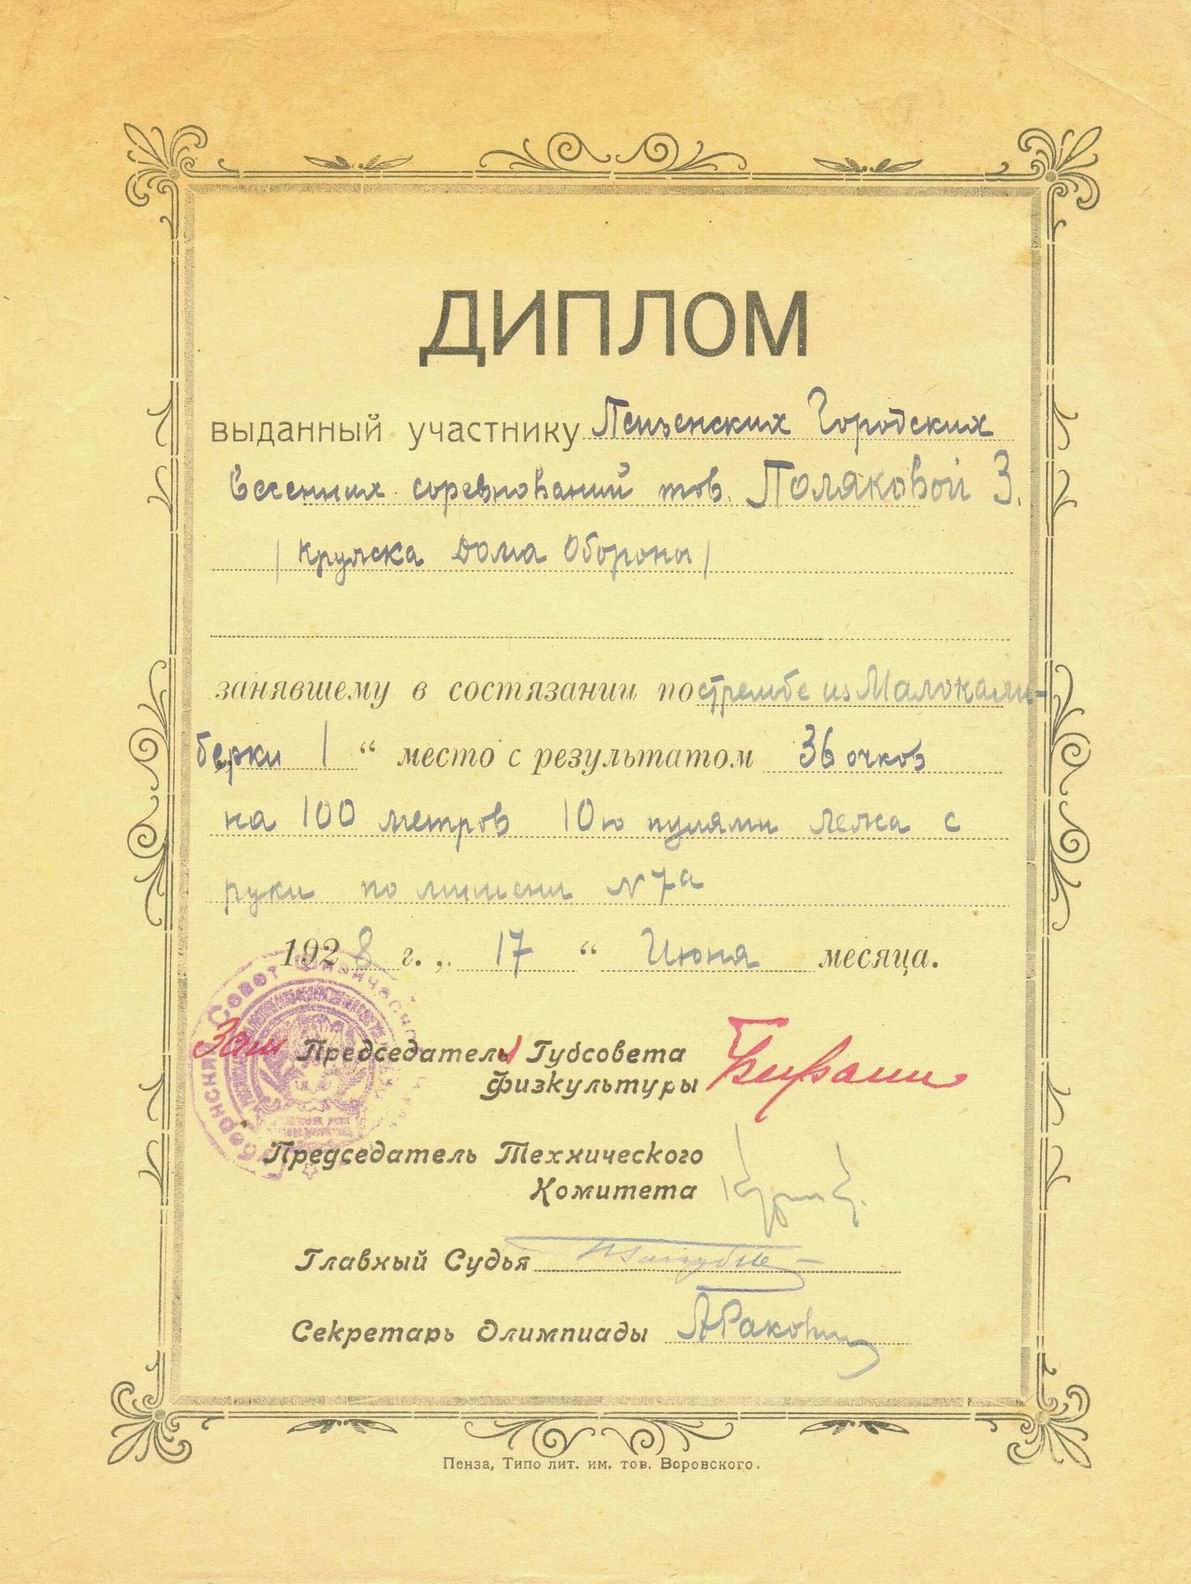 ДИПЛОМ
выданный участнику Пензенских Городских
весенних соревнований тов. Поляковой З.
/ кружска Дома Обороны /
занявшему в состязании по стрельбе из Малокали-
берки 1 “ место с результатом 36 очков
на 100 метров 10ю пулями лежа с
руки по мишени № 7а
1928 г. „ 17 “ Июня месяца.
Зам Председателя Губсовета
физкультуры
Председатель Технического
Комитета
Главный Судья
Секретарь Олимпиады
Пенза, Типо лит. им. тов. Воровского.